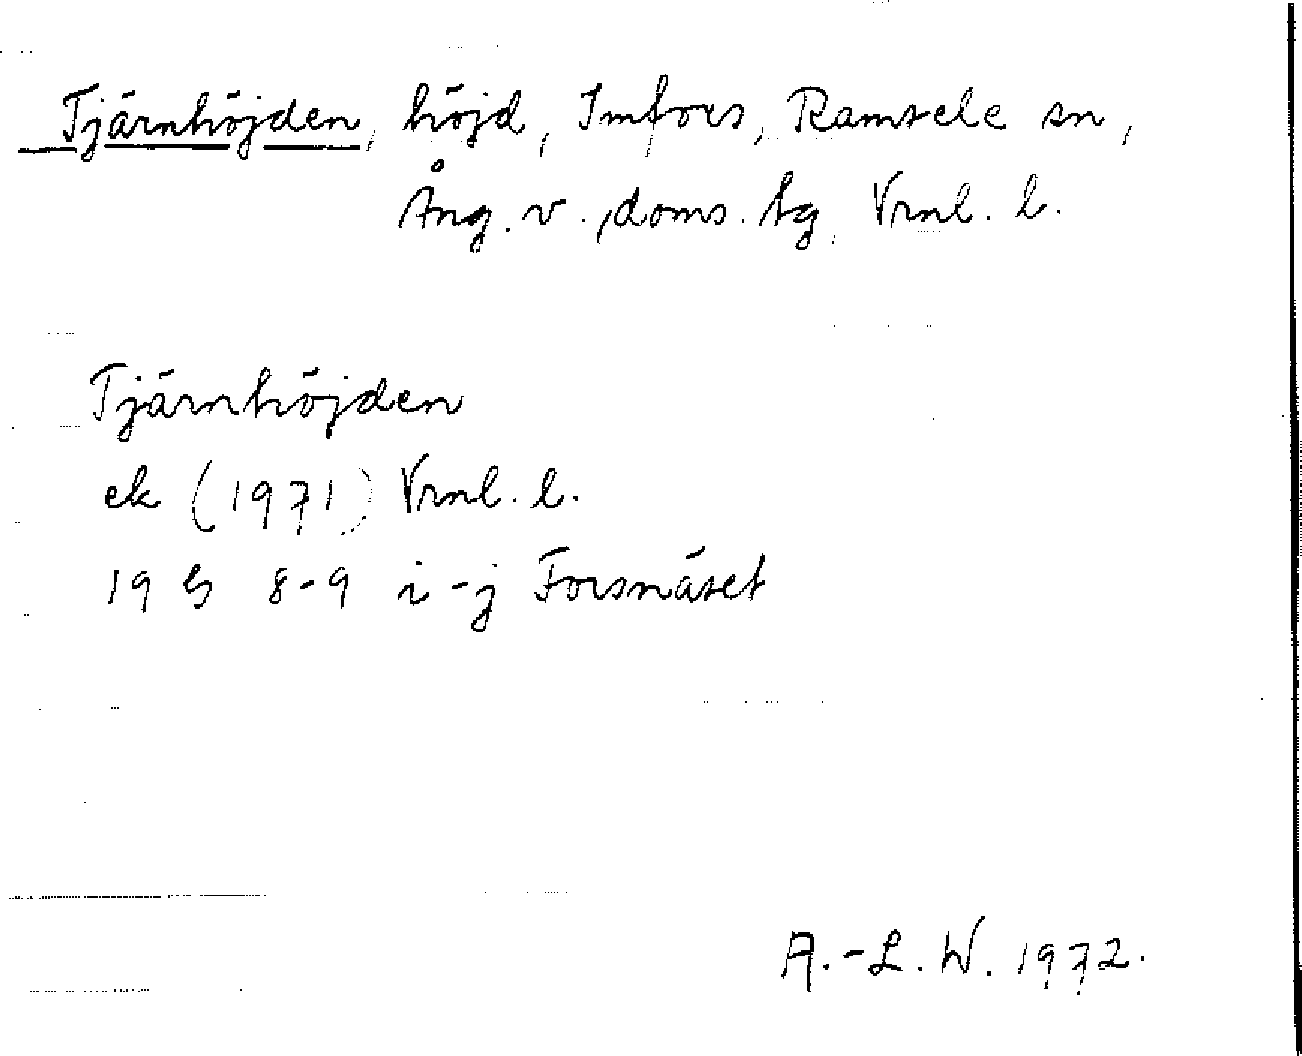 Tjärnhöjden, höjd, Imfors, Ramsele sn,
Ång. v. doms. tg, Vrnl. l.
Tjärnhöjden
ek (1971) Vrnl. l.
19 G 8-9 i-j Forsnäset
A.-L. W. 1972.